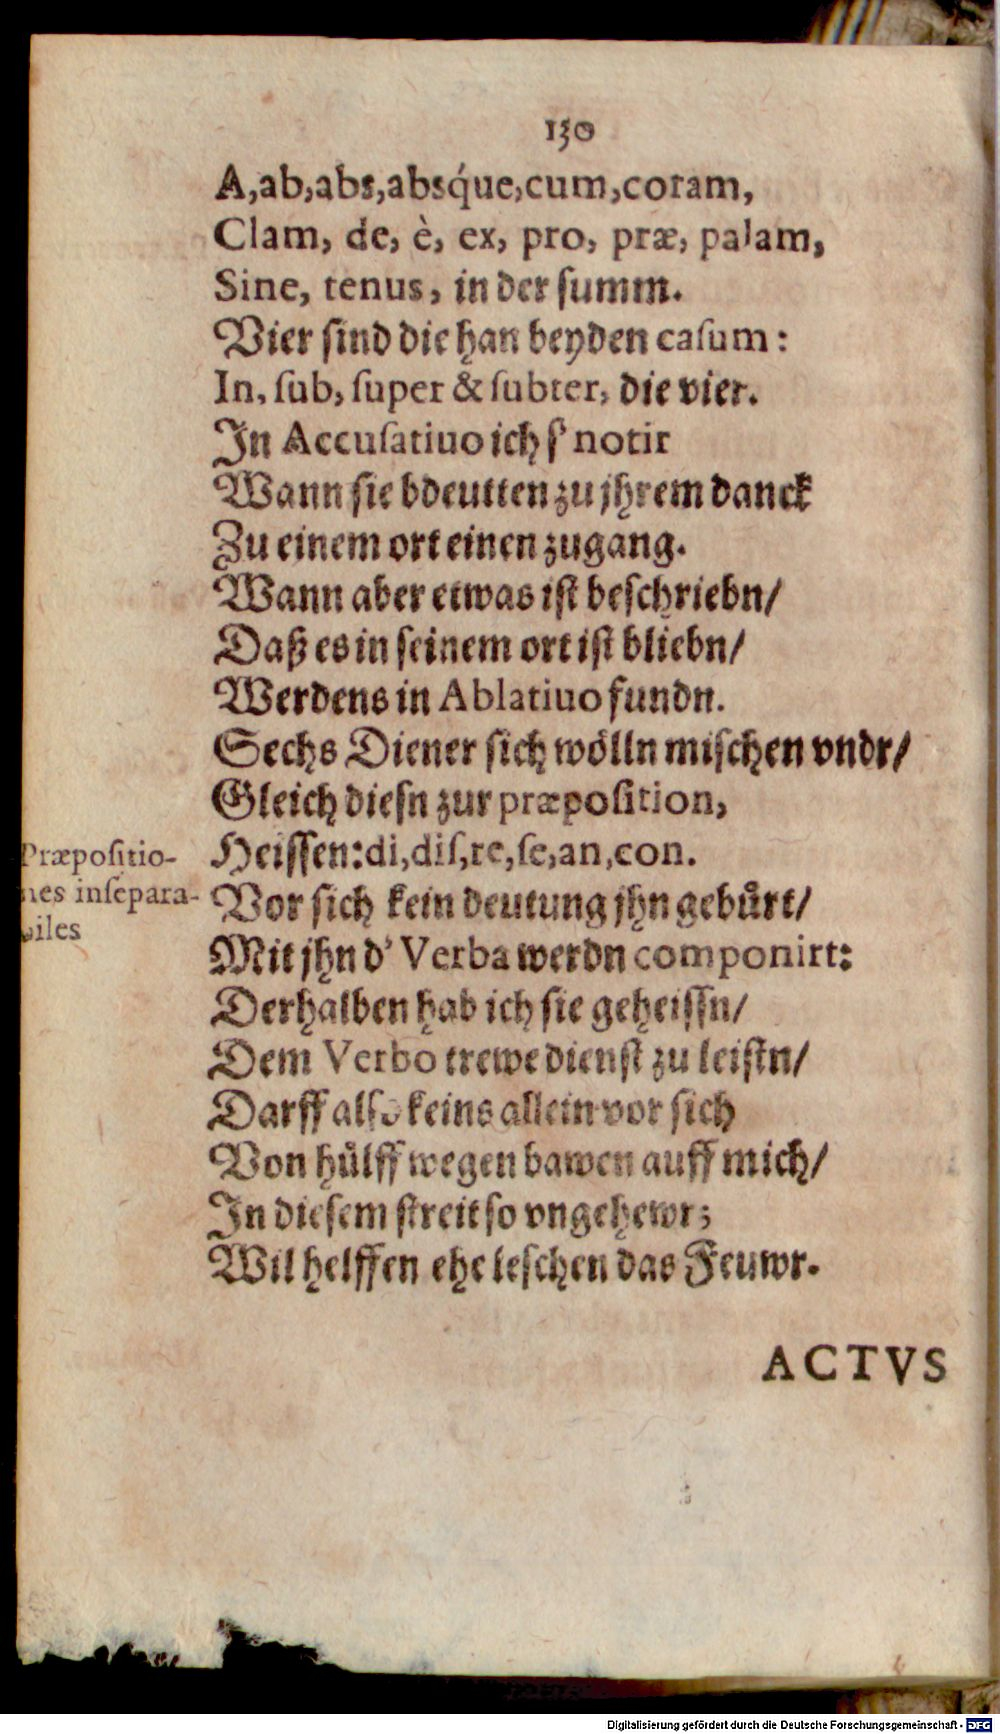 130
A,ab,abs,absq́ue,cum,coram,
Clam, de, è, ex, pro, præ, palam,
Sine, tenus, in der summ.
Vier sind die han beyden caſum:
In, ſub, ſuper & ſubter, die vier.
In Accuſatiuo ich ſ' notir
Wann sie bdeutten zu jhrem danck
Zu einem ort einen zugang.
Wann aber etwas iſt beſchriebn/
Daß es in ſeinem ort iſt bliebn/
Werdens in Ablatiuo fundn.
Sechs Diener ſich wölln miſchen vndr/
Gleich dieſn zur præpoſition,
Heiſſen: di, diſ, re, ſe, an, con.
Præpoſitio-
nes inſepara-
biles
Vor ſich kein deutung jhn gebůrt/
Mit jhn d' Verba werdn componirt:
Derhalben hab ich ſie geheiſſn/
Dem Verbo trewe dienſt zu leiſtn/
Darff alſo keins allein vor ſich
Von hůlff wegen bawen auff mich/
In dieſem ſtreit ſo vngehewr;
Wil helffen ehe leſchen das Feuwr.
ACTVS
Digitalisierung gefördert durch die Deutsche Forschungsgemeinschaft - DFG